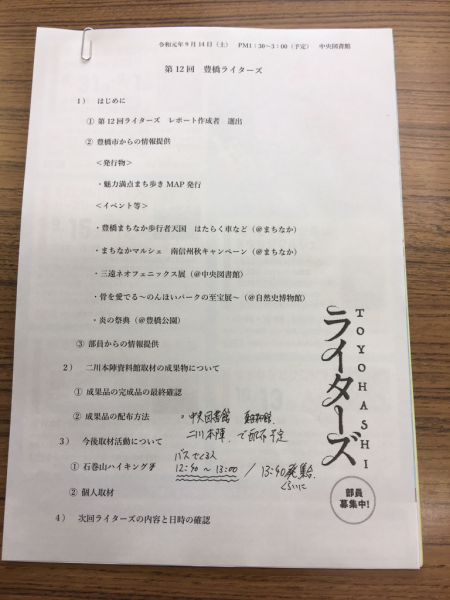 令和元年9月14日（土）　PM1：30～3：00（予定）　中央図書館
第12回　豊橋ライターズ
1）　はじめに
① 第12回ライターズ　レポート作成者　選出
② 豊橋市からの情報提供
＜発行物＞
・魅力満点まち歩きMAP発行
＜イベント等＞
・豊橋まちなか歩行者天国　はたらく車など（@まちなか）
・まちなかマルシェ　南信州秋キャンペーン（@まちなか）
・三遠ネオフェニックス展（@中央図書館）
・骨を愛でる～のんほいパークの至宝展～（@自然史博物館）
・炎の祭典（@豊橋公園）
③ 部員からの情報提供
2）　二川本陣資料館取材の成果物について
① 成果品の完成品の最終確認
② 成果品の配布方法　。中央図書館
二川本陣、で配布予定
3）　今後取材活動について
バスでくる人
① 石巻山ハイキング　12:40～13:00　/　13:40
くらいに
② 個人取材
4）　次回ライターズの内容と日時の確認
TOYOHASHI
ライターズ
部員
募集中!